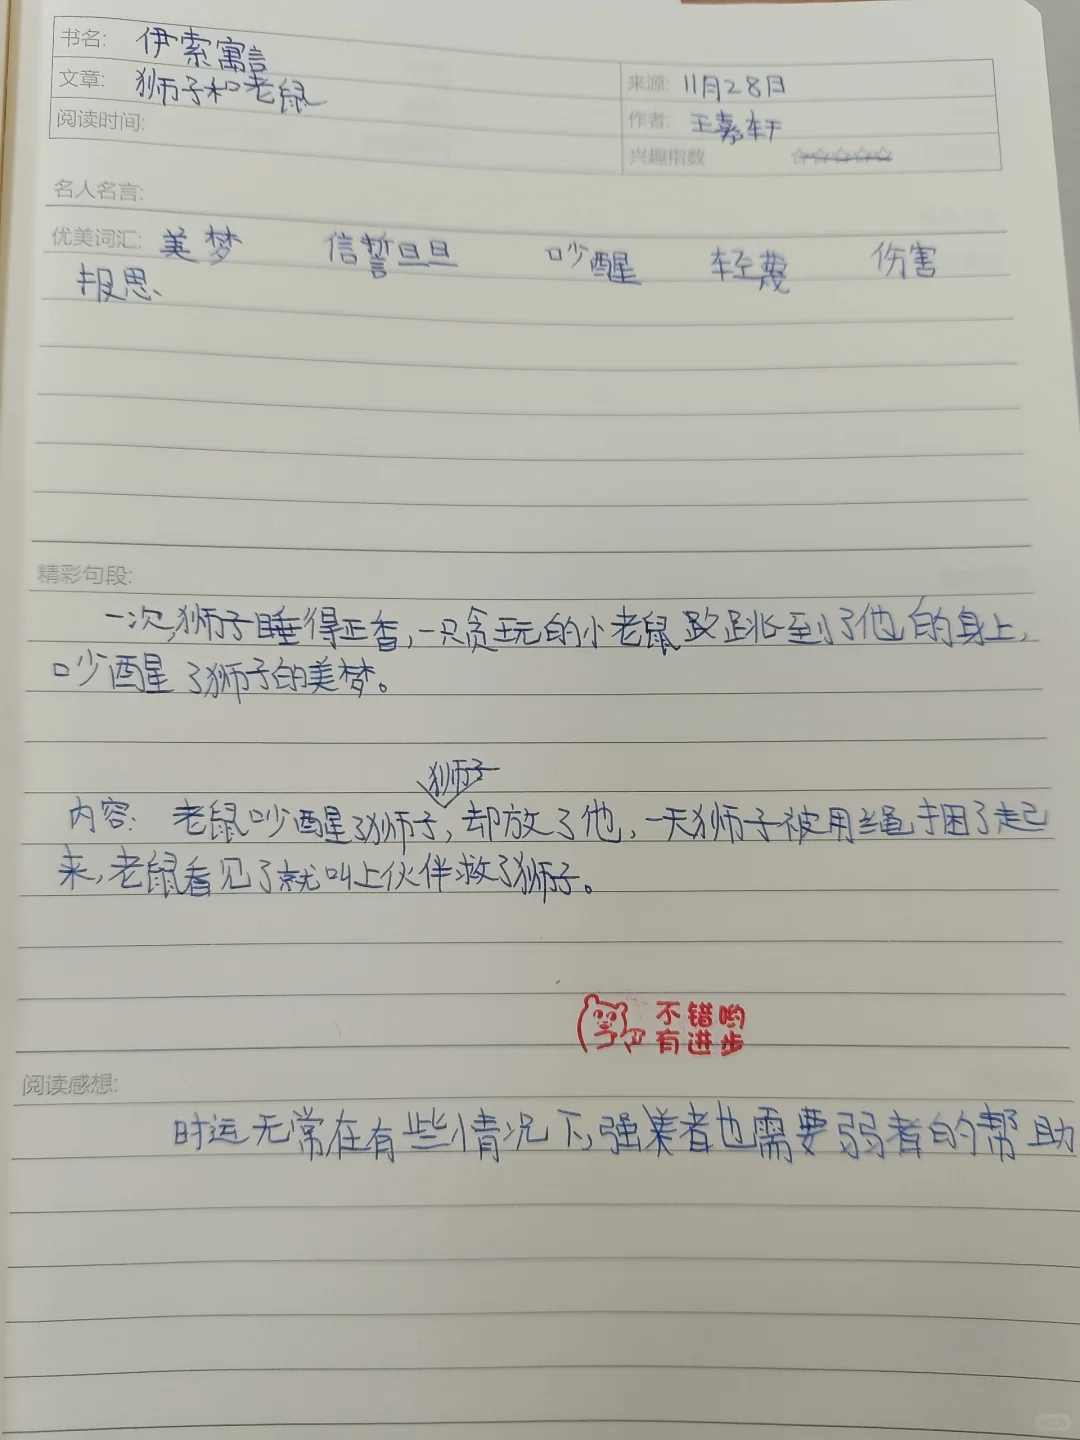 书名: 伊索寓言
文章: 狮子和老鼠
来源: 11月28日
阅读时间:
作者: 王嘉轩
兴趣指数 ☆☆☆☆☆
名人名言:
优美词汇: 美梦 信誓旦旦 吵醒 轻蔑 伤害
报恩
精彩句段:
一次,狮子睡得正香,一只贪玩的小老鼠跳到了他的身上,
吵醒了狮子的美梦。
狮子
内容: 老鼠吵醒了狮子,却放了他,一天狮子被用绳捆了起
来,老鼠看见了就叫上伙伴救了狮子。
不错哟
有进步
阅读感想:
时运无常在有些情况下,强者也需要弱者的帮助